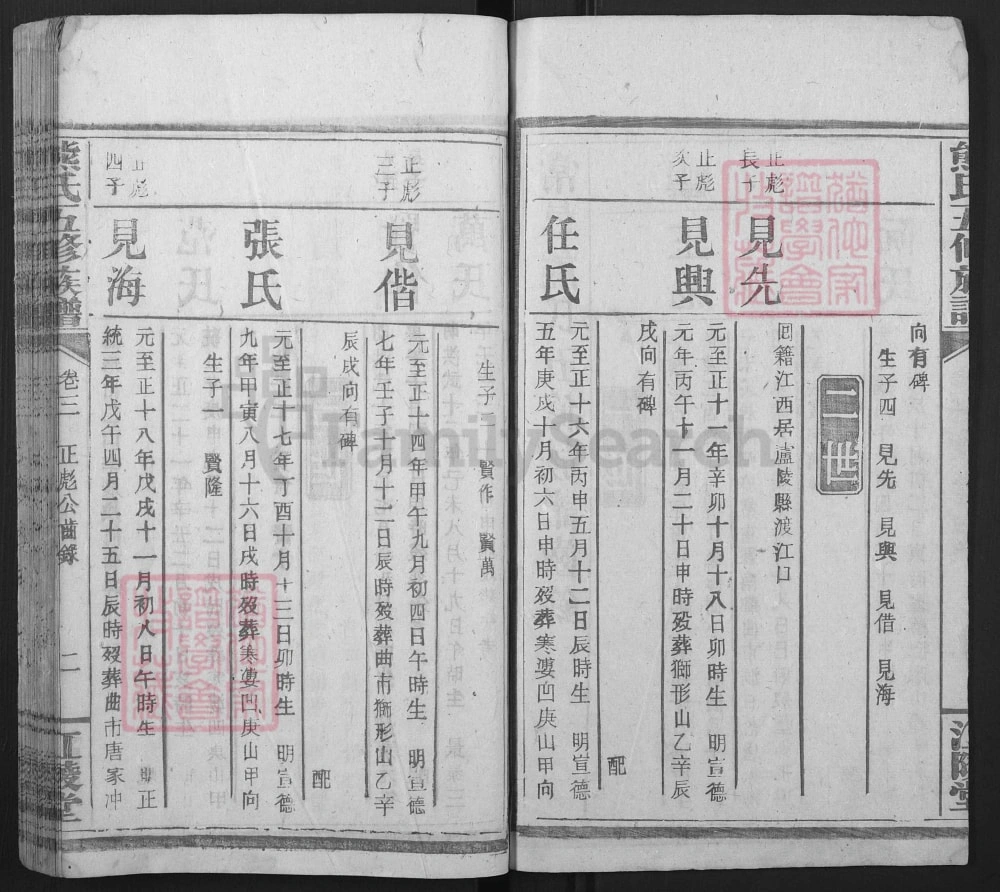 向有碑
生子四 見先 見興 見偕 見海
二世
正彪
長子
見先
回籍江西居盧陵縣渡江口
正彪
次子
見興
元至正十一年辛卯十月十八日卯時生 明宣德
元年丙午十一月二十日申時歿葬獅形山乙辛辰
戌向有碑
配
任氏
元至正十六年丙申五月十二日辰時生 明宣德
五年庚戌十月初六日申時歿葬寒婆凹庚山甲向
生子二 賢作 賢萬
正彪
三子
見偕
元至正十四年甲午九月初四日午時生 明宣德
七年壬子十月十二日辰時歿葬曲南獅形山乙辛
辰戌向有碑
配
張氏
元至正十七年丁酉十月十三日卯時生 明宣德
九年甲寅八月十六日戌時歿葬寒婆凹庚山甲向
生子一 賢隆
正彪
四子
見海
元至正十八年戊戌十一月初八日午時生 明正
統三年戊午四月二十五日辰時歿葬曲南唐家冲
熊氏五修族譜
卷三
正彪公齒錄
二
江陵堂
FamilySearch